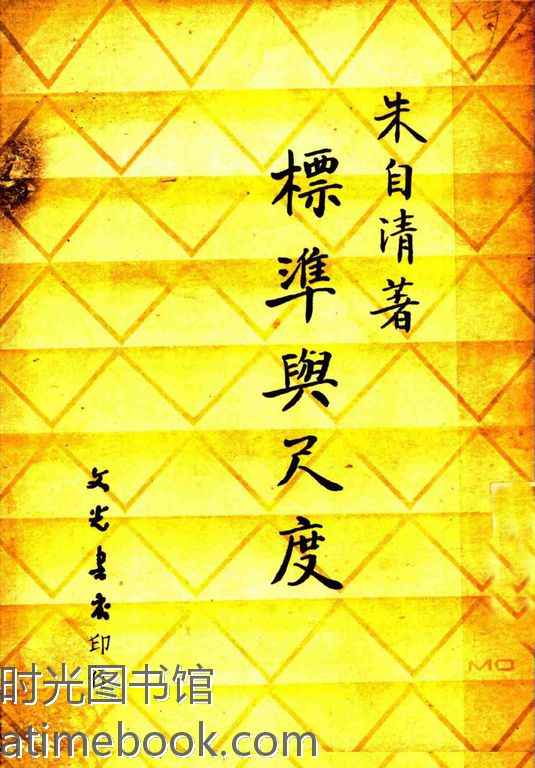 朱自清著
標準與尺度
文光書店印行
MO
时光图书馆
atimebook.com